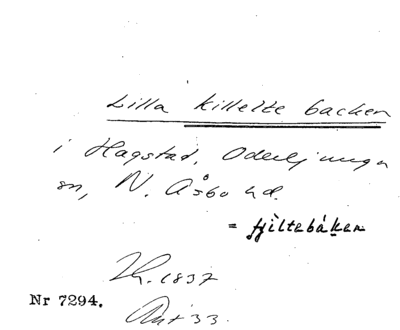 Lilla killelte backen
i Hagstad, Oderljunga
sn, N. Åsbo hd.
= fjiltebåken
Lh. 1837
Nr 7294.
Akt 33.